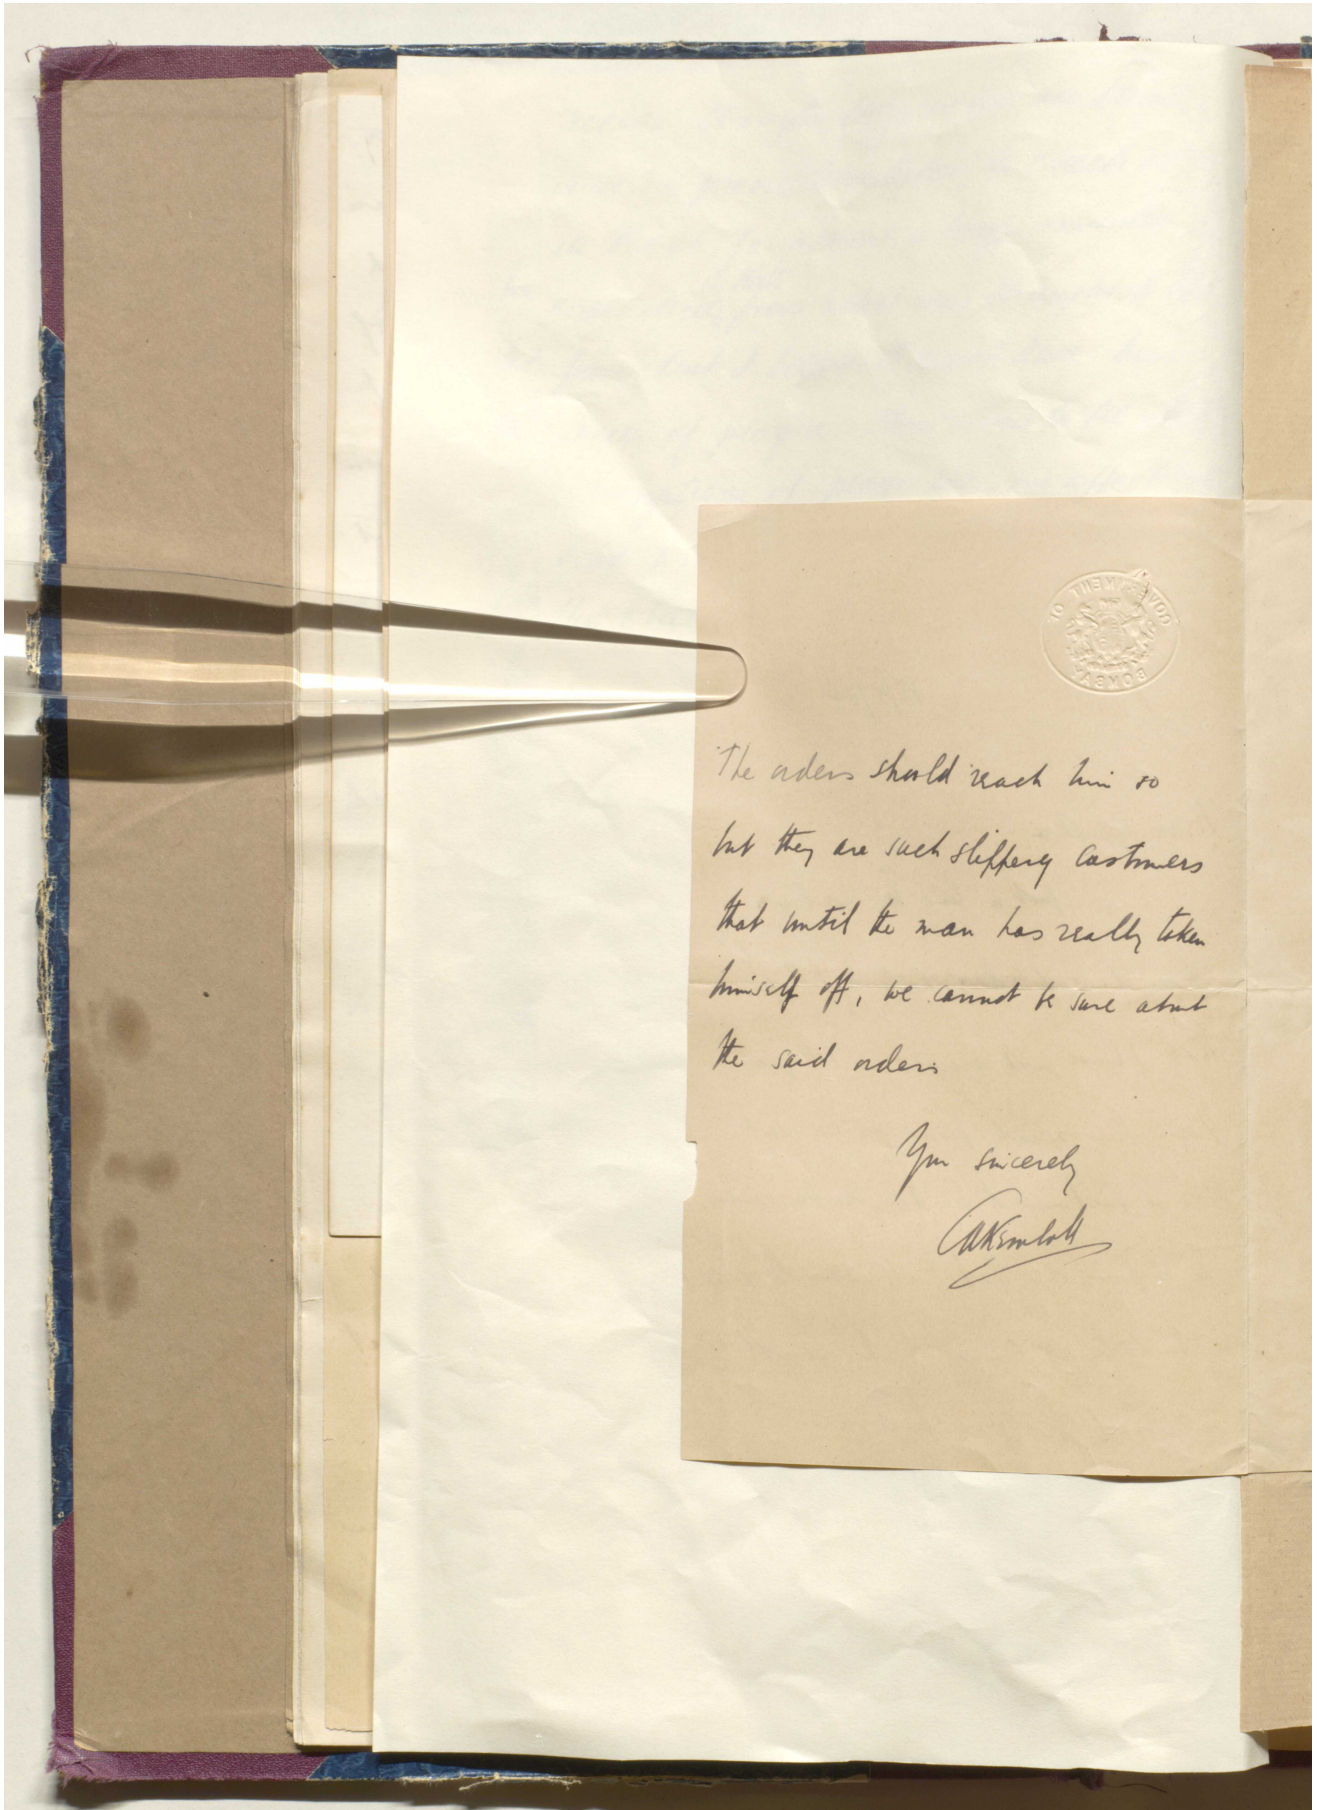 GOVERNMENT OF
BOMBAY
The orders should reach him so
but they are such slippery customers
that until the man has really taken
himself off, we cannot be sure about
the said orders
Yrs sincerely